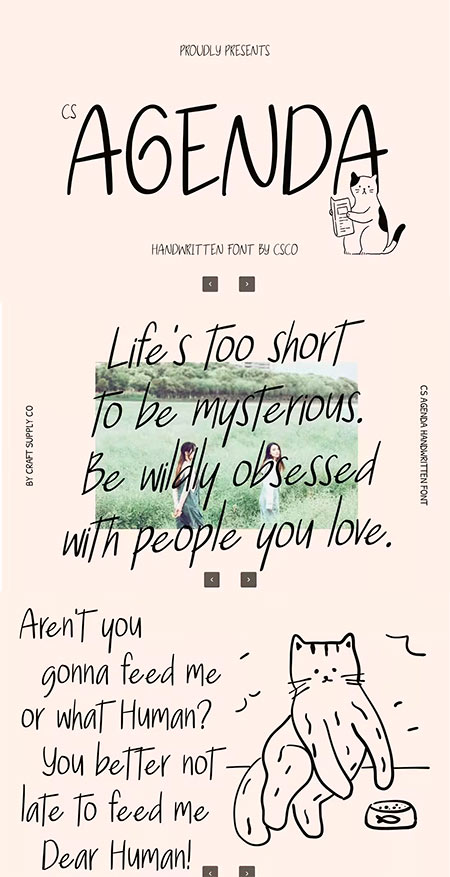 PROUDLY PRESENTS
CS
AGENDA
HANDWRITTEN FONT BY CSCO
Life's too short
to be mysterious.
Be wildly obsessed
with people you love.
BY CRAFT SUPPLY CO
CS AGENDA HANDWRITTEN FONT
Aren't you
gonna feed me
or what Human?
You better not
late to feed me
Dear Human!